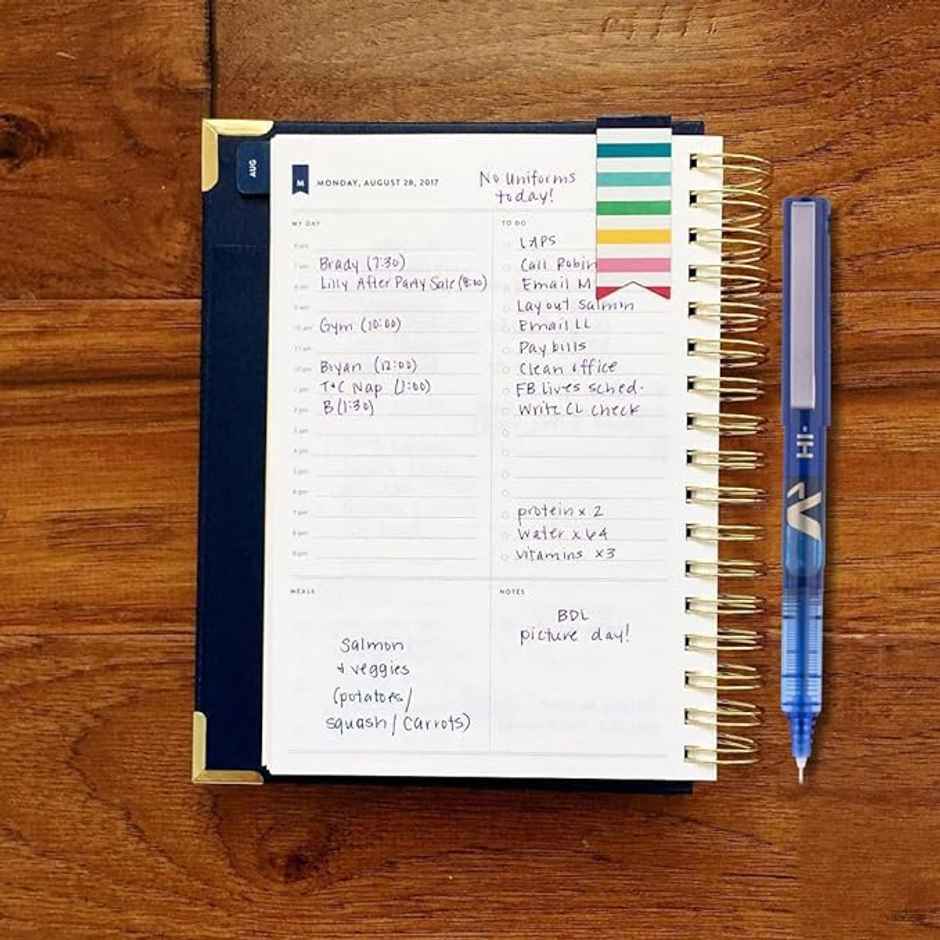 AUG
M MONDAY, AUGUST 28, 2017
No uniforms
today!
MY DAY
6 am
7 am Brady (7:30)
8 am Lilly After Party Sale (8:00)
9 am
10 am Gym (10:00)
11 am
12 pm Bryan (12:00)
1 pm T+C Nap (1:00)
2 pm B (1:30)
3 pm
4 pm
5 pm
6 pm
7 pm
8 pm
9 pm
TO DO
LAPS
Call Robin
Email M
Lay out salmon
Email LL
Pay bills
Clean office
FB lives sched.
Write CL check
protein x 2
water x 64
vitamins x3
MEALS
Salmon
+ veggies
(potatoes/
squash/carrots)
NOTES
BDL
picture day!